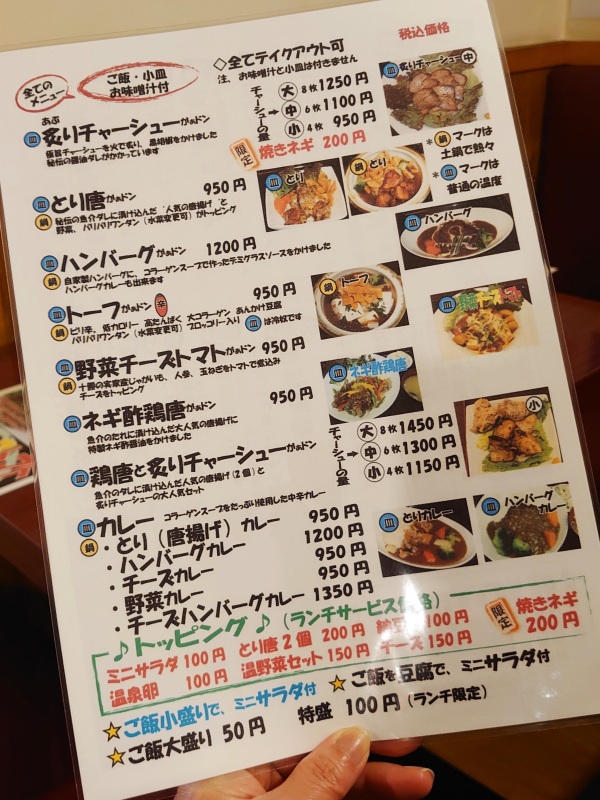 税込価格
全ての
メニュー
ご飯・小皿
お味噌汁付
◇全てテイクアウト可
注、お味噌汁と小皿は付きません
チャーシューの量
大 8枚 1250円
中 6枚 1100円
小 4枚 950円
限定 焼きネギ 200円
皿 炙りチャーシュー 中
あぶ
皿 炙りチャーシューがぁドン
極旨チャーシューを火で炙り、黒胡椒をかけました
秘伝の醤油ダレがかかっています
*鍋マークは
土鍋で熱々
*皿マークは
普通の温度
皿 とり
鍋 とり
皿 とり唐がぁドン 950円
鍋 秘伝の魚介ダレに漬け込んだ 人気の唐揚げ と
野菜、パリパリワンタン(水菜変更可)がトッピング
皿 ハンバーグ
皿 ハンバーグがぁドン 1200円
鍋 自家製ハンバーグに、コラーゲンスープで作ったデミグラスソースをかけました
ハンバーグカレーも出来ます
鍋 トーフ
皿 トーフがぁドン 辛 950円
鍋 ピリ辛。低カロリー 高たんぱく 大コラーゲン あんかけ豆腐
パリパリワンタン(水菜変更可) ブロッコリー入り 皿は冷奴です
皿 野菜チーズトマト
皿 野菜チーズトマトがぁドン 950円
鍋 十勝の実家産じゃがいも、人参、玉ねぎをトマトで煮込み
チーズをトッピング
皿 ネギ酢鶏唐
皿 ネギ酢鶏唐がぁドン 950円
魚介のたれに漬け込んだ大人気の唐揚げに
特製ネギ酢醤油をかけました
チャーシューの量
大 8枚 1450円
中 6枚 1300円
小 4枚 1150円
小
皿 鶏唐と炙りチャーシューがぁドン
魚介のダレに漬け込んだ大人気の唐揚げ(2個)と
炙りチャーシューの大人気セット
皿 カレー コラーゲンスープをたっぷり使用した中辛カレー
鍋 ・とり(唐揚げ)カレー 950円
・ハンバーグカレー 1200円
・チーズカレー 950円
・野菜カレー 950円
・チーズハンバーグカレー 1350円
皿 とりカレー
皿 ハンバーグ
カレー
♪トッピング♪ (ランチサービス価格)
ミニサラダ 100円 とり唐2個 200円 納豆 100円
温泉卵 100円 温野菜セット 150円 チーズ 150円
限定 焼きネギ
200円
☆ご飯小盛りで、ミニサラダ付 ☆ご飯を豆腐で、ミニサラダ付
☆ご飯大盛り 50円 特盛 100円 (ランチ限定)